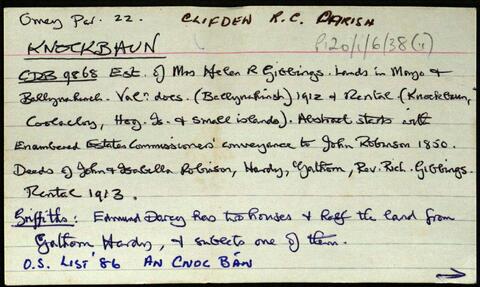 Omey Par. 22. CLIFDEN R.C. PARISH
P120/1/6/38(ii)
KNOCKBAUN
CDB 9868 Est. of Mrs Helen R Gibbings. Lands in Mayo &
Ballynahinch. Valn. docs. (Ballynahinch) 1912 & Rental (Knockbaun,
Hog Is. & small islands). Abstract starts with
Enambered Estates Commissioners' conveyance to John Robinson 1850.
Deeds of John & Isabella Robinson, Hardy, Gathorn, Rev. Rich. Gibbings.
Rental 1913.
Griffiths: Edmund Darcy has two houses & half the land from
Gathorn Hardy, & sublets one of them.
O.S. LIST '86 AN CNOC BÁN